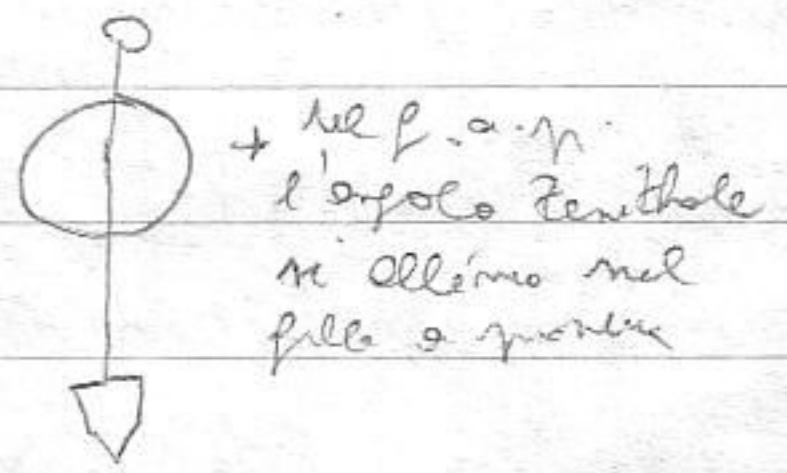 + nel f.a.p.
l'angolo zenithale
si allinea nel
filo a piombo